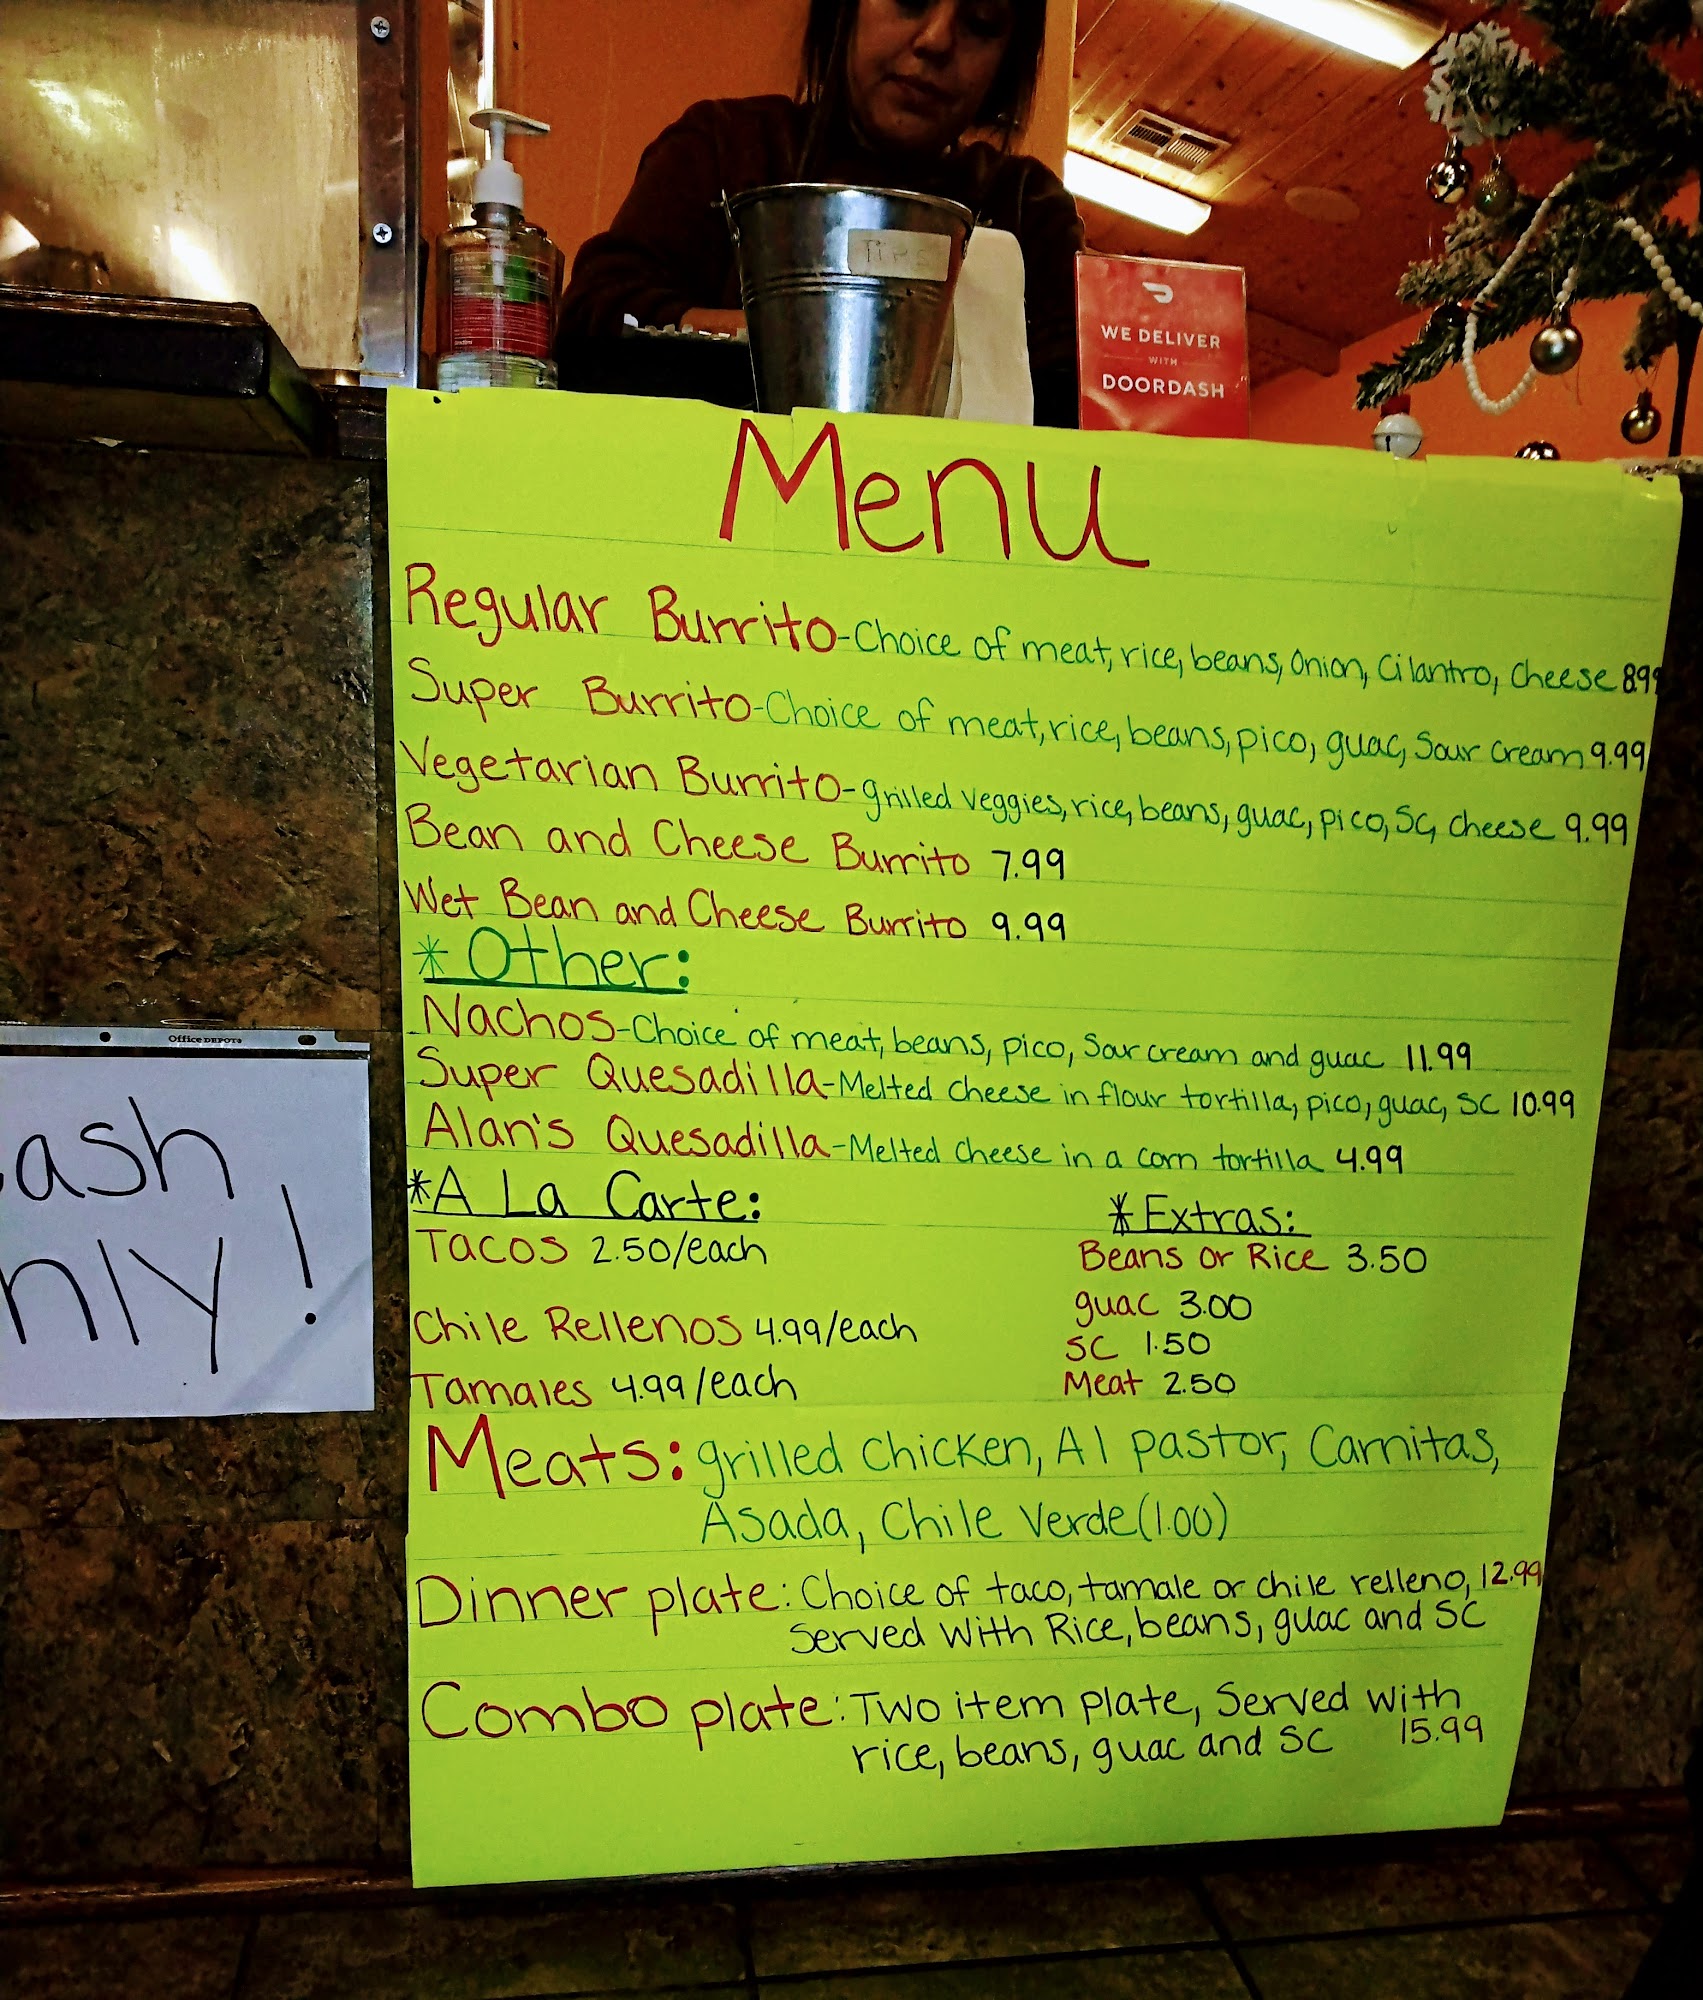 TIPS
WE DELIVER
WITH
DOORDASH
Menu
Regular Burrito-Choice of meat, rice, beans, Onion, Cilantro, Cheese 8.99
Super Burrito-Choice of meat, rice, beans, pico, guac, Sour Cream 9.99
Vegetarian Burrito-grilled veggies, rice, beans, guac, pico, SC, cheese 9.99
Bean and Cheese Burrito 7.99
Wet Bean and Cheese Burrito 9.99
*Other:
Nachos-Choice of meat, beans, pico, Sour cream and guac 11.99
Super Quesadilla-Melted cheese in flour tortilla, pico, guac, SC 10.99
Alan's Quesadilla-Melted cheese in a corn tortilla 4.99
*A La Carte:
Tacos 2.50/each
Chile Rellenos 4.99/each
Tamales 4.99/each
*Extras:
Beans or Rice 3.50
guac 3.00
SC 1.50
Meat 2.50
Meats: grilled chicken, Al pastor, Carnitas,
Asada, Chile Verde(1.00)
Dinner plate: Choice of taco, tamale or chile relleno, 12.99
Served With Rice, beans, guac and SC
Combo plate: Two item plate, Served with
rice, beans, guac and SC 15.99
Office DEPOT
ash
nly!